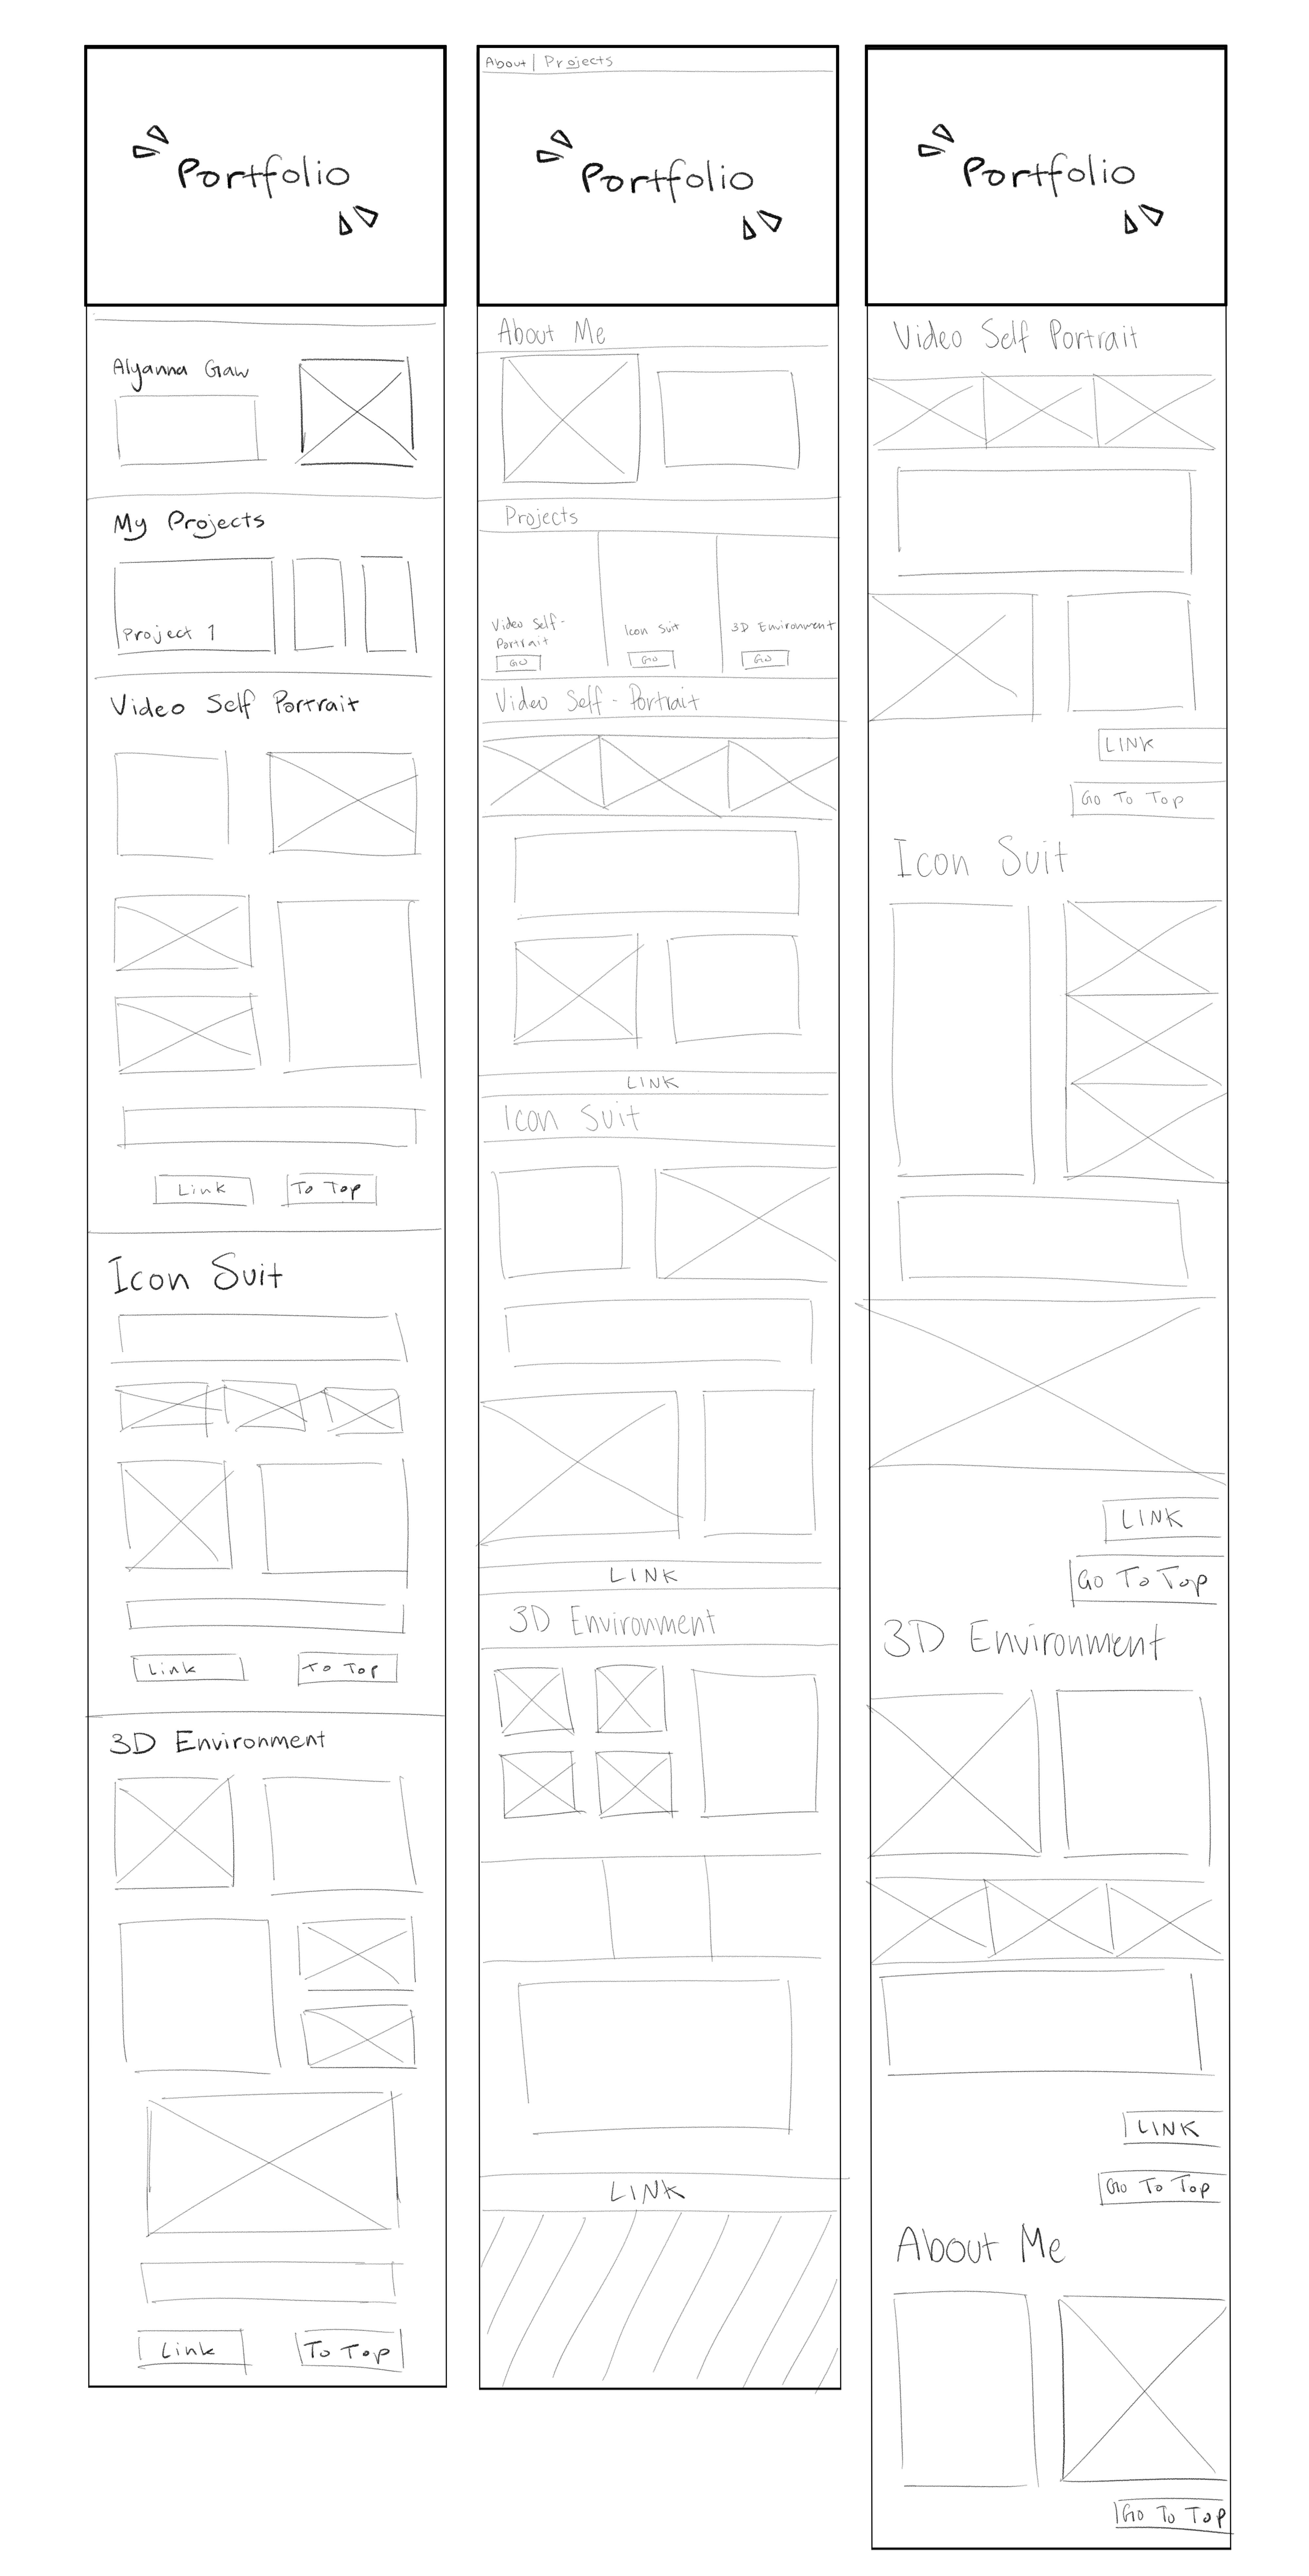 Portfolio
Alyanna Gaw
My Projects
Project 1
Video Self Portrait
Link
To Top
Icon Suit
Link
To Top
3D Environment
Link
To Top
About | Projects
Portfolio
About Me
Projects
Video Self-
Portrait
GO
Icon Suit
GO
3D Environment
GO
Video Self-Portrait
LINK
Icon Suit
LINK
3D Environment
LINK
Portfolio
Video Self Portrait
LINK
Go To Top
Icon Suit
LINK
Go To Top
3D Environment
LINK
Go To Top
About Me
Go To Top